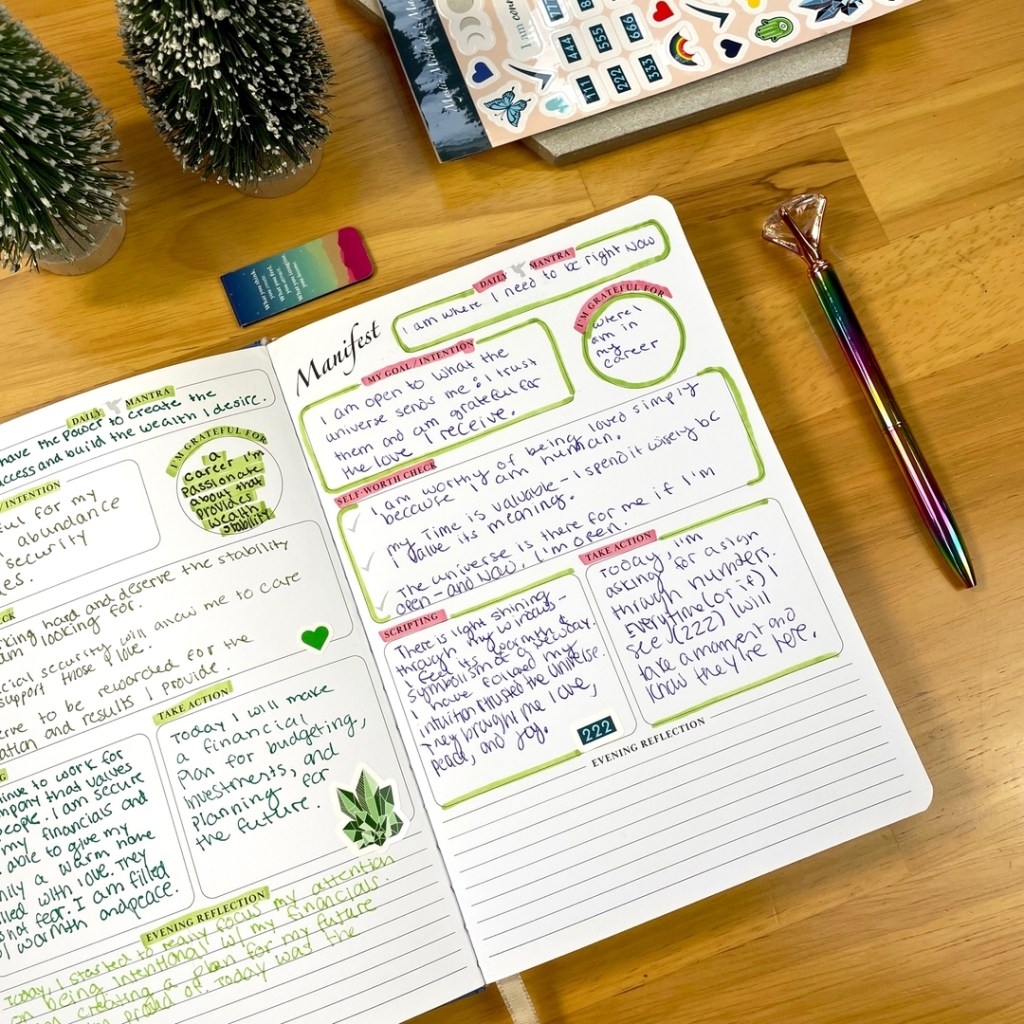 I am
777
444
555
666
111
222
333
What you think,
you create.
What you feel,
you attract.
What you imagine,
you become.
DAILY MANTRA
have the power to create the
access and build the wealth I desire.
I'M GRATEFUL FOR
a
career I'm
passionate
about that
provides
wealth +
stability
/INTENTION
ful for my
abundance
security
es.
CK
rking hard and deserve the stability
am looking for.
cial security will allow me to care
support those I love.
erve to be rewarded for the
ation and results I provide.
TAKE ACTION
Today I will make
a financial
plan for budgeting,
investments, and
planning for
the future.
NG
tinue to work for
mpany that values
people. I am secure
my financials and
able to give my
mily a warm home
filled with love. They
is not fear. I am filled
w/ warmth and peace.
EVENING REFLECTION
Today, I started to really focus my attention
on being intentional w/ my financials.
I'm creating a plan for my future
I'm proud of Today was the
Manifest
DAILY MANTRA
I am where I need to be right now
MY GOAL/INTENTION
I am open to what the
universe sends me & I trust
them and am grateful for
the love I receive.
I'M GRATEFUL FOR
where I
am in
my
career
SELF-WORTH CHECK
I am worthy of being loved simply
because I am human.
my time is valuable - I spend it wisely bc
I value its meanings.
The universe is there for me if I'm
open - and now, I'm open.
SCRIPTING
There is light shining
through my windows -
I feel its warmth &
symbolism of a new day.
I have followed my
intuition & trusted the universe.
They brought me love,
peace, and joy.
222
TAKE ACTION
Today, I'm
asking for a sign
through numbers.
Everytime (or if) I
see (222) I will
take a moment and
know they're here.
EVENING REFLECTION